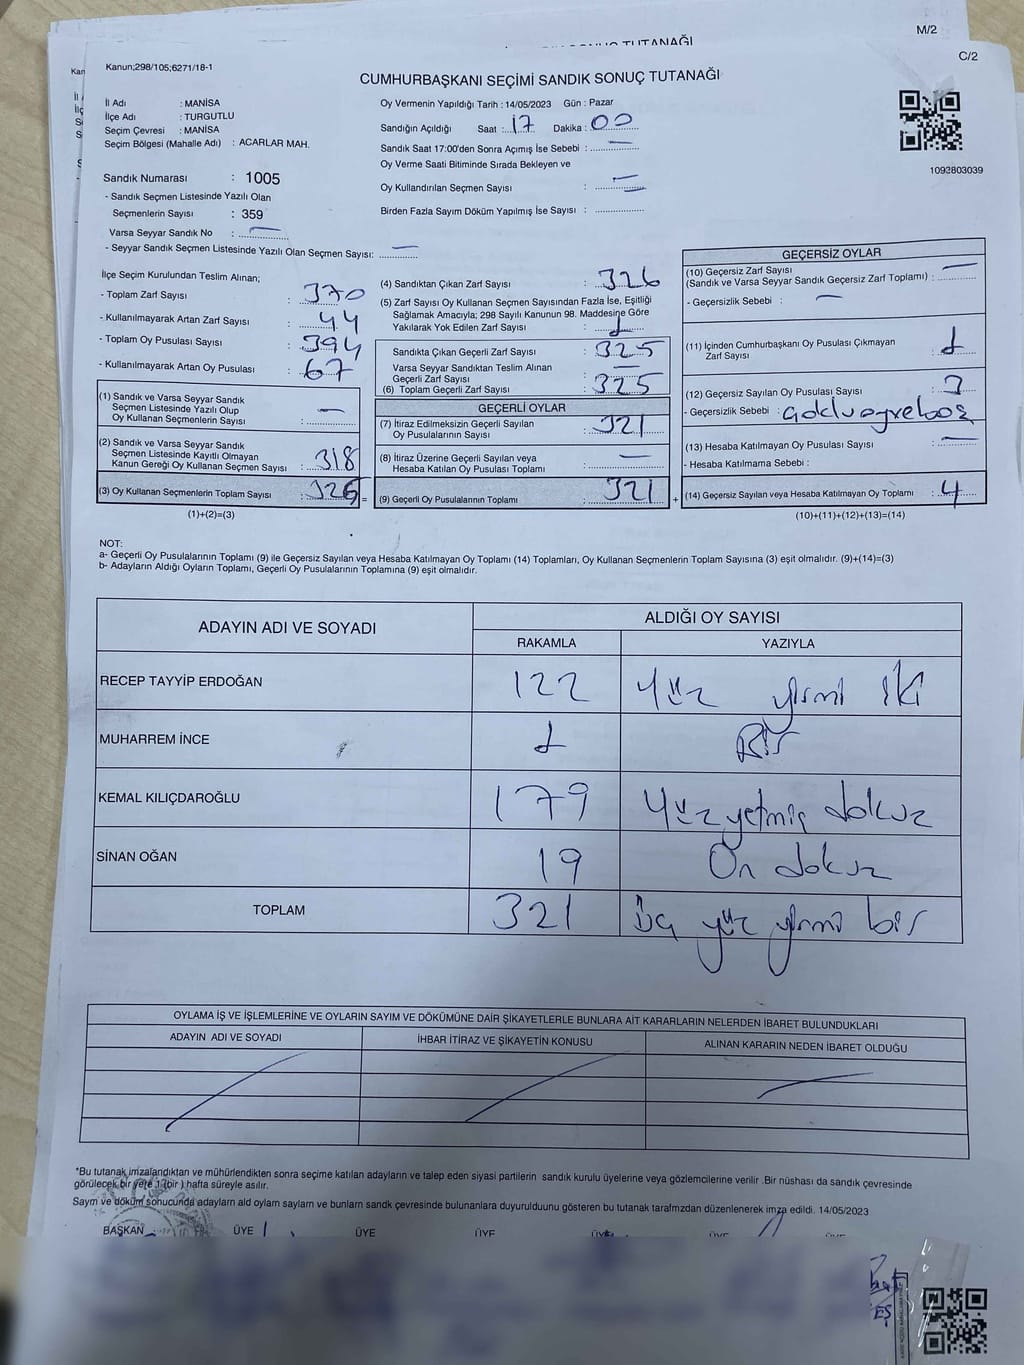 M/2
C/2
Kanun;298/105;6271/18-1
CUMHURBAŞKANI SEÇİMİ SANDIK SONUÇ TUTANAĞI
İl Adı : MANİSA
İlçe Adı : TURGUTLU
Seçim Çevresi : MANİSA
Seçim Bölgesi (Mahalle Adı) : ACARLAR MAH.
Oy Vermenin Yapıldığı Tarih : 14/05/2023 Gün : Pazar
Sandığın Açıldığı Saat : 17 Dakika : 00
Sandık Saat 17:00'den Sonra Açımış İse Sebebi : —
Oy Verme Saati Bitiminde Sırada Bekleyen ve
Oy Kullandırılan Seçmen Sayısı : —
Birden Fazla Sayım Döküm Yapılmış İse Sayısı :
1092803039
Sandık Numarası : 1005
- Sandık Seçmen Listesinde Yazılı Olan
Seçmenlerin Sayısı : 359
Varsa Seyyar Sandık No : —
- Seyyar Sandık Seçmen Listesinde Yazılı Olan Seçmen Sayısı: —
İlçe Seçim Kurulundan Teslim Alınan;
- Toplam Zarf Sayısı : 370
- Kullanılmayarak Artan Zarf Sayısı : 44
- Toplam Oy Pusulası Sayısı : 394
- Kullanılmayarak Artan Oy Pusulası : 67
(1) Sandık ve Varsa Seyyar Sandık
Seçmen Listesinde Yazılı Olup
Oy Kullanan Seçmenlerin Sayısı : —
(2) Sandık ve Varsa Seyyar Sandık
Seçmen Listesinde Kayıtlı Olmayan
Kanun Gereği Oy Kullanan Seçmen Sayısı : 318
(3) Oy Kullanan Seçmenlerin Toplam Sayısı : 326 =
(1)+(2)=(3)
(4) Sandıktan Çıkan Zarf Sayısı : 326
(5) Zarf Sayısı Oy Kullanan Seçmen Sayısından Fazla İse, Eşitliği
Sağlamak Amacıyla; 298 Sayılı Kanunun 98. Maddesine Göre
Yakılarak Yok Edilen Zarf Sayısı : 1
Sandıkta Çıkan Geçerli Zarf Sayısı : 325
Varsa Seyyar Sandıktan Teslim Alınan
Geçerli Zarf Sayısı : —
(6) Toplam Geçerli Zarf Sayısı : 325
GEÇERLİ OYLAR
(7) İtiraz Edilmeksizin Geçerli Sayılan
Oy Pusulalarının Sayısı : 321
(8) İtiraz Üzerine Geçerli Sayılan veya
Hesaba Katılan Oy Pusulası Toplamı : —
(9) Geçerli Oy Pusulalarının Toplamı : 321 +
GEÇERSİZ OYLAR
(10) Geçersiz Zarf Sayısı
(Sandık ve Varsa Seyyar Sandık Geçersiz Zarf Toplamı) : —
- Geçersizlik Sebebi : —
(11) İçinden Cumhurbaşkanı Oy Pusulası Çıkmayan
Zarf Sayısı : 1
(12) Geçersiz Sayılan Oy Pusulası Sayısı : 3
- Geçersizlik Sebebi :
(13) Hesaba Katılmayan Oy Pusulası Sayısı : —
- Hesaba Katılmama Sebebi :
(14) Geçersiz Sayılan veya Hesaba Katılmayan Oy Toplamı : 4
(10)+(11)+(12)+(13)=(14)
NOT:
a- Geçerli Oy Pusulalarının Toplamı (9) ile Geçersiz Sayılan veya Hesaba Katılmayan Oy Toplamı (14) Toplamları, Oy Kullanan Seçmenlerin Toplam Sayısına (3) eşit olmalıdır. (9)+(14)=(3)
b- Adayların Aldığı Oyların Toplamı, Geçerli Oy Pusulalarının Toplamına (9) eşit olmalıdır.
ADAYIN ADI VE SOYADI
ALDIĞI OY SAYISI
RAKAMLA YAZIYLA
RECEP TAYYİP ERDOĞAN 122 Yüz yirmi iki
MUHARREM İNCE 1 Bir
KEMAL KILIÇDAROĞLU 179 Yüz yetmiş dokuz
SİNAN OĞAN 19 On dokuz
TOPLAM 321 Üç yüz yirmi bir
OYLAMA İŞ VE İŞLEMLERİNE VE OYLARIN SAYIM VE DÖKÜMÜNE DAİR ŞİKAYETLERLE BUNLARA AİT KARARLARIN NELERDEN İBARET BULUNDUKLARI
ADAYIN ADI VE SOYADI İHBAR İTİRAZ VE ŞİKAYETİN KONUSU ALINAN KARARIN NEDEN İBARET OLDUĞU
*Bu tutanak imzalandıktan ve mühürlendikten sonra seçime katılan adayların ve talep eden siyasi partilerin sandık kurulu üyelerine veya gözlemcilerine verilir .Bir nüshası da sandık çevresinde
görülecek bir yere 1 (bir ) hafta süreyle asılır.
Saym ve döküm sonucunda adaylarn ald oylarn saylarn ve bunlarn sandk çevresinde bulunanlara duyurulduunu gösteren bu tutanak tarafmzdan düzenlenerek imza edildi. 14/05/2023
BAŞKAN ÜYE ÜYE ÜYE